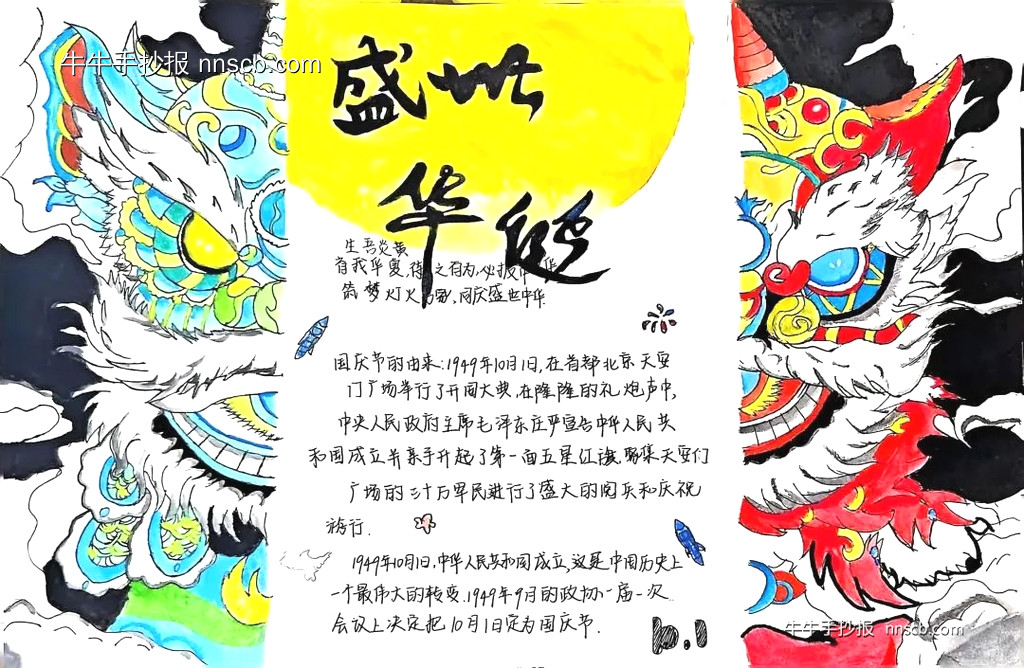 牛牛手抄报 nnscb.com
盛世
华诞
生吾炎黄
育我华夏,待之有为,必报中华
筑梦灯火,国庆盛世中华
国庆节的由来:1949年10月1日,在首都北京天安
门广场举行了开国大典,在隆隆的礼炮声中,
中央人民政府主席毛泽东庄严宣告中华人民共
和国成立并亲手升起了第一面五星红旗,聚集天安们
广场的三十万军民进行了盛大的阅兵和庆祝
游行.
1949年10月1日,中华人民共和国成立,这是中国历史上
一个最伟大的转变.1949年9月的政协一届一次
会议上决定把10月1日定为国庆节.
10.1
牛牛手抄报 nnscb.com